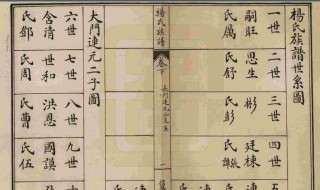 楊氏族譜世系圖
一世 二世 三世 四世
嗣旺 思生 彬 廷棟
氏厲 氏舒 氏彭 氏張
楊氏族譜 卷下 一
大門連元二子圖
六世 七世 八世 九世
含清 世和 洪恩 國謨
氏鄧 氏周 氏曹 氏伍